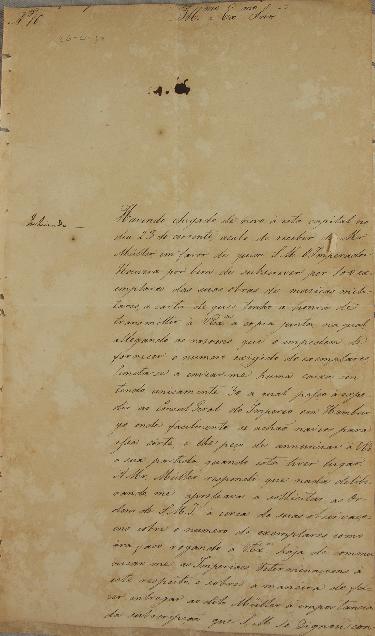 Nº 16
Illmo e Exmo Snr
Havendo chegado de novo a esta capital no
dia 23 do corrente acabo de receber Mr
Müller em favor de quem S. M. O Imperador
Houvera por bem de subscrever por 100 ex-
emplares das suas obras de musicas mili-
tares, a carta de que tenho a honra de
transmetter à VExa a copia junta na qual
allegando as rasoens que o impedem de
fornecer o numero exigido de exemplares
limita-se a enviar-me huma caixa con-
tendo unicamente 30 a qual passo a expe-
dir ao Consul Geral do Imperio em Hambur-
go onde facilmente se achão navios para
essa corte e lhe peço de annunciar à VExa
a sua partida quando esta tiver lugar.
A Mr. Müller respondi que nada delibe-
rando me apressava a sollicitar as Or-
dens de S. M. I. à cerca de suas observaço-
ens sobre o numero de exemplares como
ora faço rogando à VExa haja de commu-
nicar-me as Imperiaes Determinaçoens a
este respeito e sobre a maneira de fa-
zer entregar ao dito Müller a importancia
da subscripção que S. M. se Dignou con-